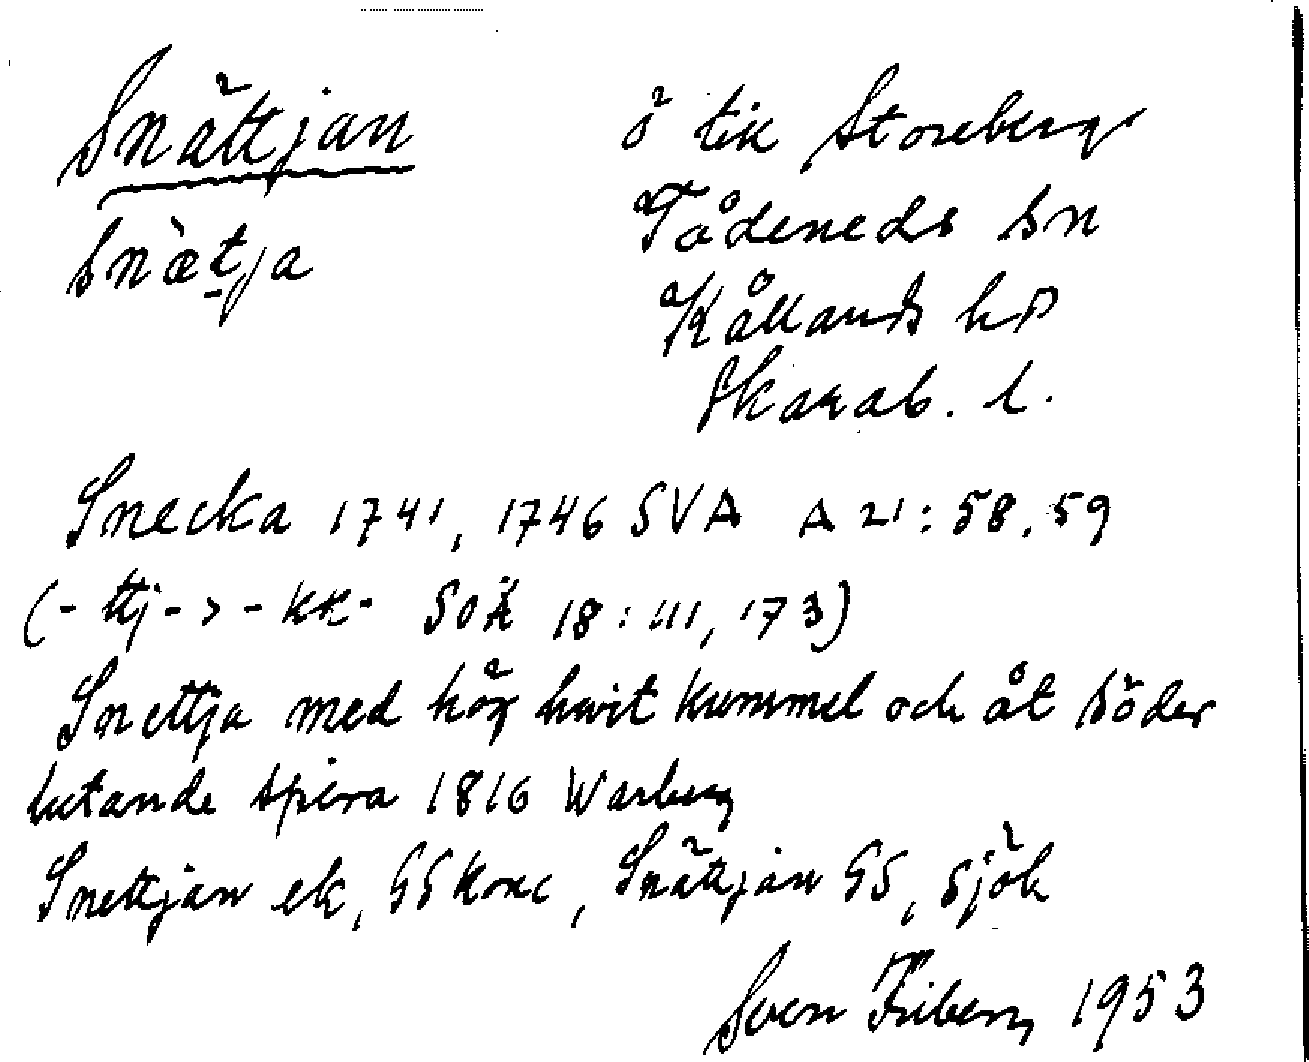 Snättjan
ö tek Storeberg
snæ̀tja
Tådeneds sn
Kållands hd
Skarab. l.
Snecka 1741, 1746 SVA A 21:58, 59
(-ttj- > -kk- SOÄ 18:III, 173)
Snettja med hög hvit kummel och åt söder
lutande spira 1816 Warberg
Snettjan ek, GSkonc, Snättjan GS, sjök
Sven Friberg 1953